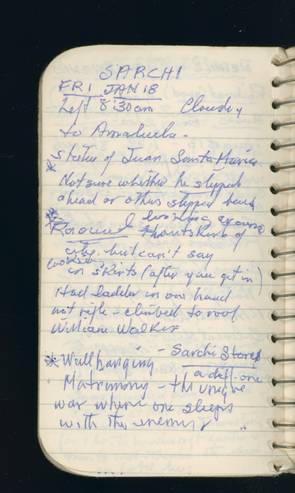 SARCHI
FRI JAN 18
Left 8:30 am Cloudy
to Amaluela.
* Statue of Juan Santa Maria
Not sure whether he stepped
ahead or others stepped back
looking
Around outskirts of
city, but can't say
in skirts (after you get in)
Had ladder in one hand
not rifle - climbed to roof
William Walker
* Wall hanging - Sarchi Store
Matrimony - the unique
war where one sleeps
with the enemy